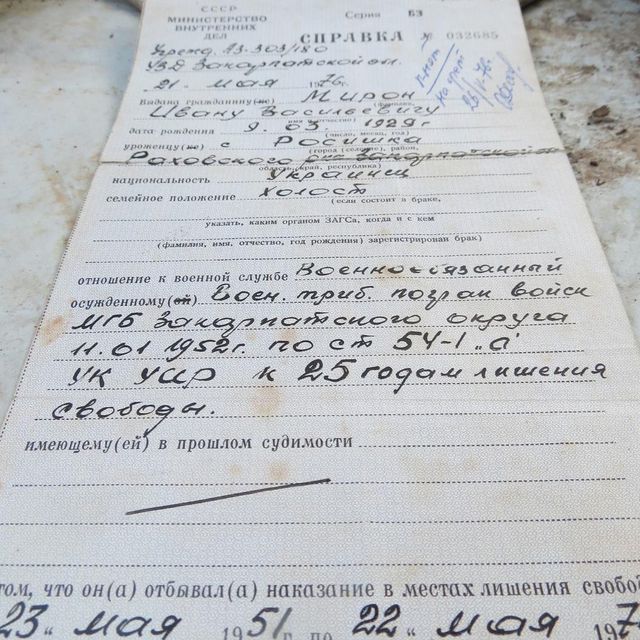 СССР
МИНИСТЕРСТВО
ВНУТРЕННИХ
ДЕЛ
Серия БЗ
СПРАВКА № 032685
Учрежд. УЗ-303/180
УВД Закарпатской обл.
21. мая 1976 г.
Выдана гражданину(ке) Мирон
(фамилия,
Ивану Васильевичу
имя и отчество)
дата рождения 9. 03. 1929 г
(число, месяц, год)
уроженцу(ке) с Росишка
(город (селение), район,
Раховского р-на Закарпатской о
область, край, республика)
национальность Украинец
семейное положение холост
(если состоит в браке,
указать, каким органом ЗАГСа, когда и с кем
(фамилия, имя, отчество, год рождения) зарегистрирован брак)
отношение к военной службе Военнообязанный
осужденному(ой) Воен. триб. погран войск
МГБ Закарпатского округа
11.01 1952г. по ст 54-1 „а"
УК УССР к 25 годам лишения
свободы.
имеющему(ей) в прошлом судимости
том, что он(а) отбывал(а) наказание в местах лишения свобод
23 „ мая 1951 г. по 22 „ мая 197